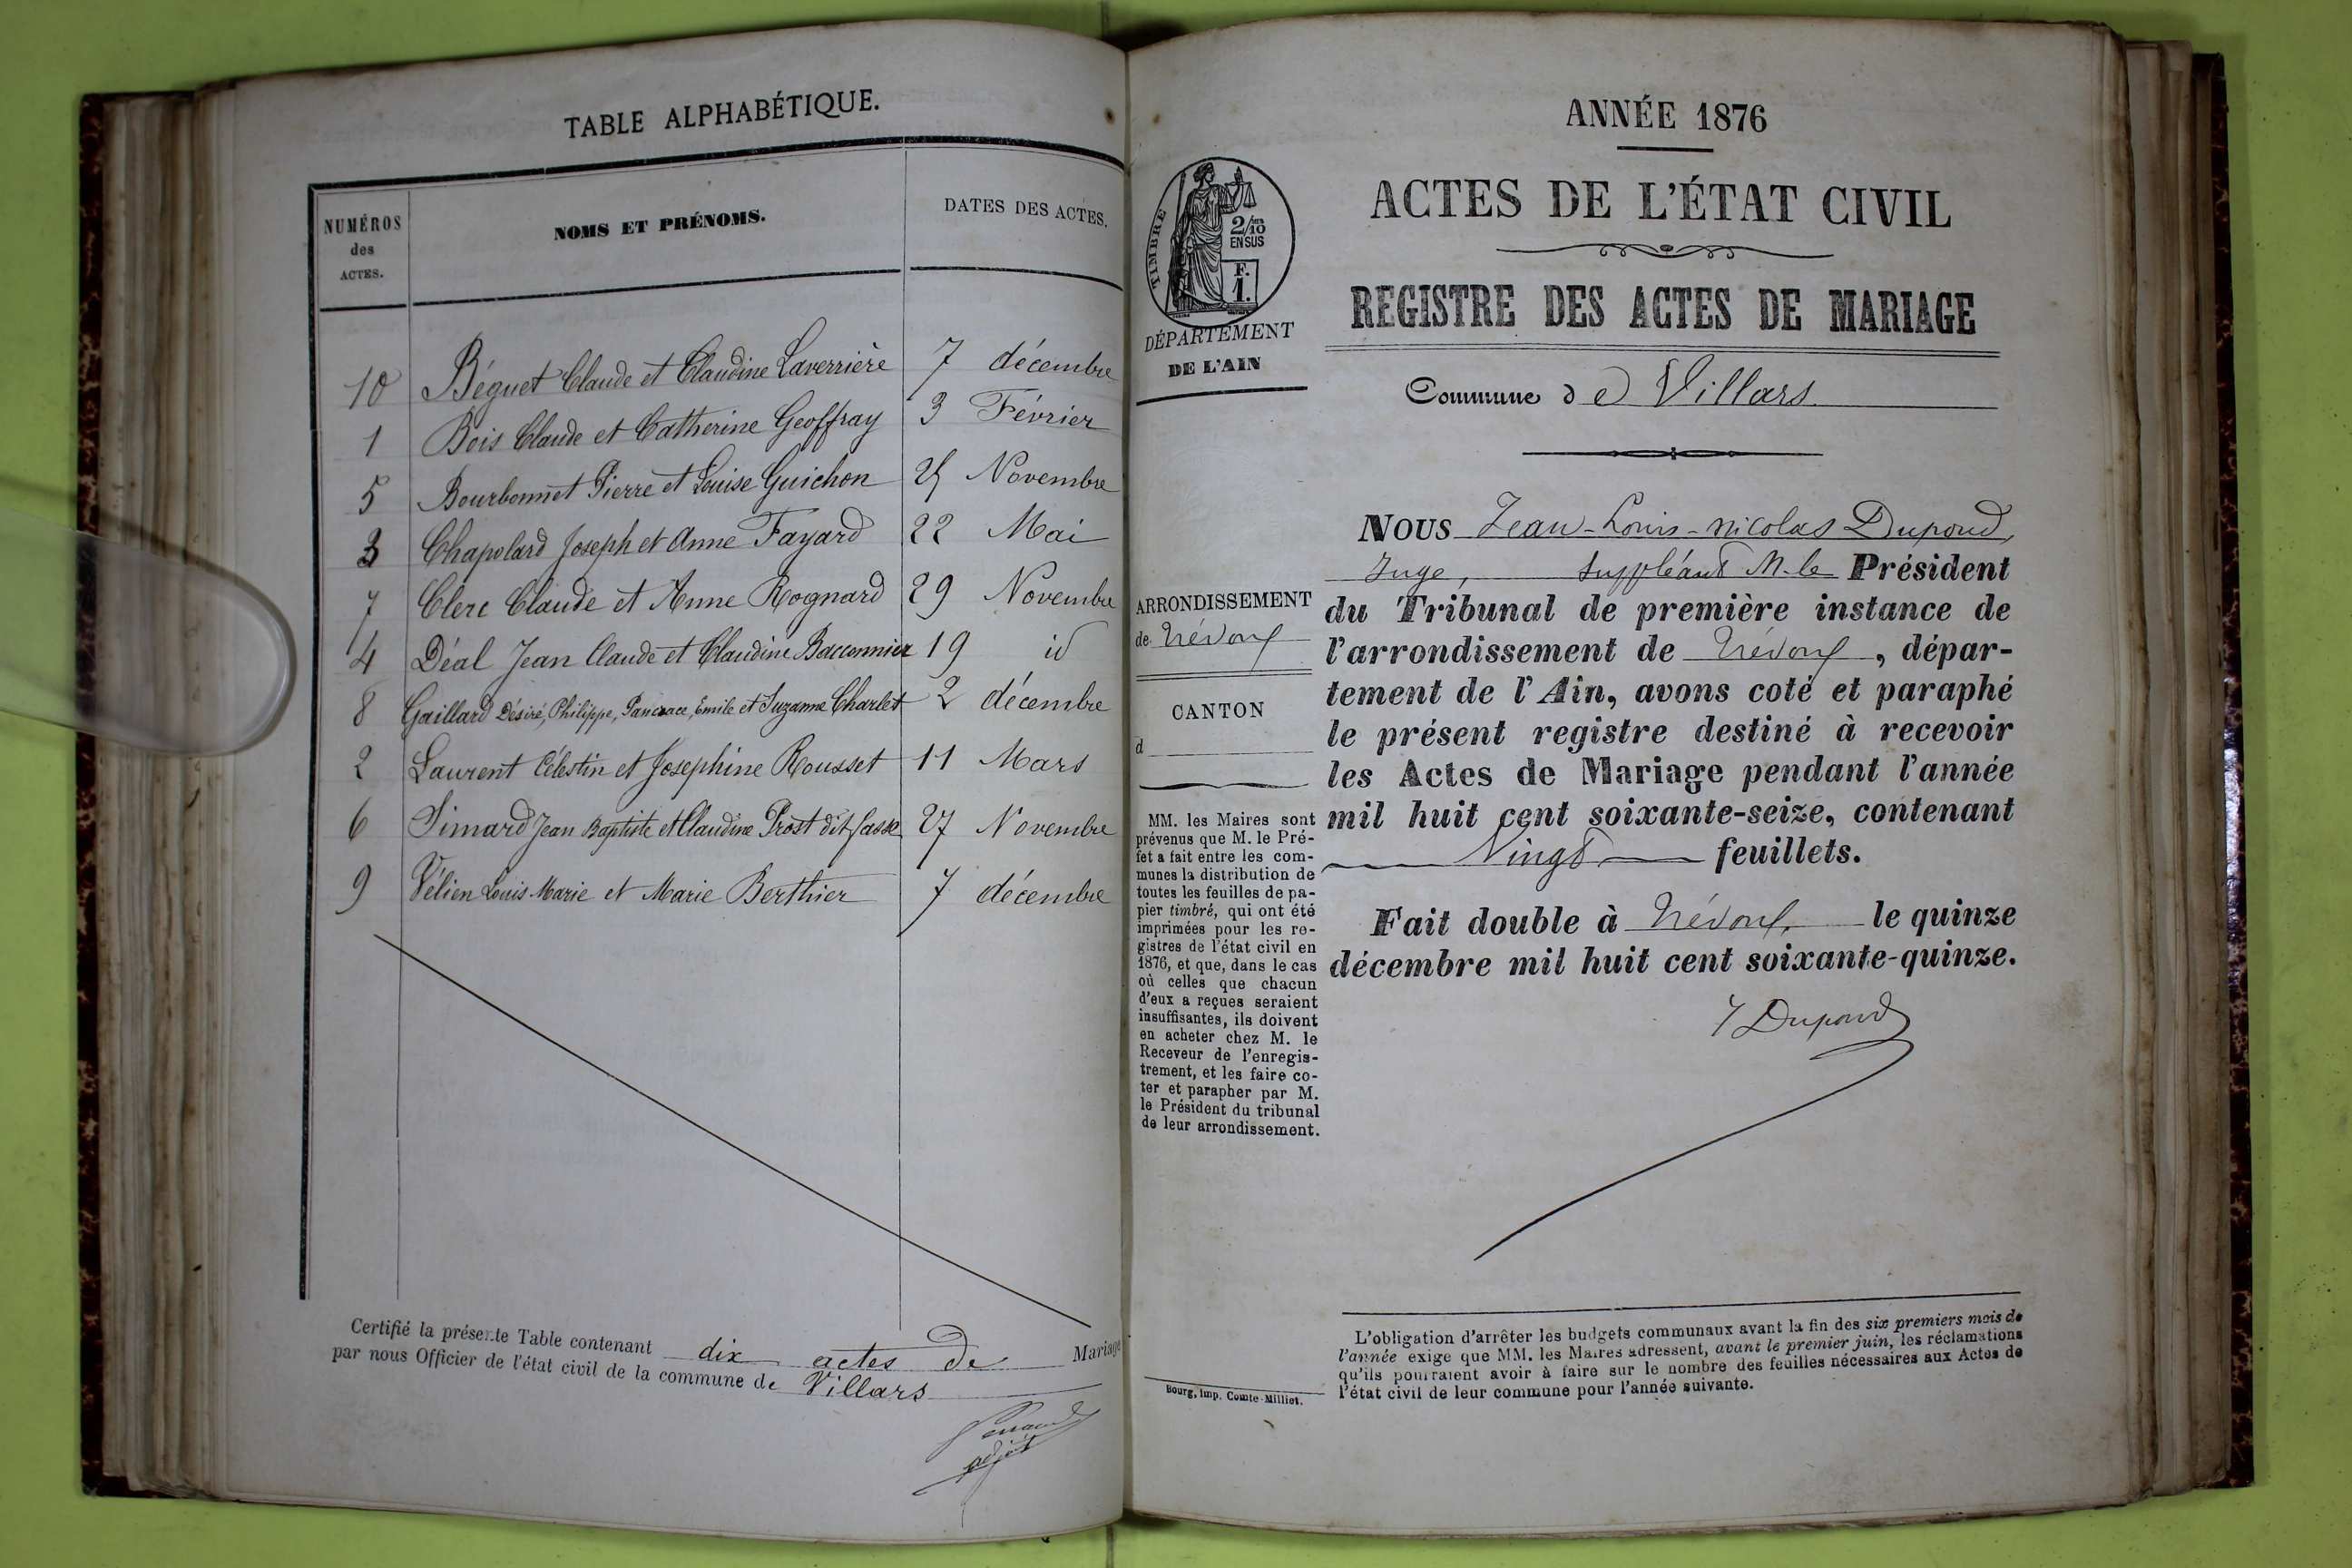 TABLE ALPHABÉTIQUE.
NUMÉROS des ACTES.
NOMS ET PRÉNOMS.
DATES DES ACTES.
10 Béguet Claude et Claudine Laverrière 7 décembre
1 Bois Claude et Catherine Geoffray 3 Février
5 Bourbonnet Pierre et Louise Guichon 25 Novembre
3 Chapolard Joseph et Anne Fayard 22 Mai
7 Clerc Claude et Anne Rognard 29 Novembre
4 Déal Jean Claude et Claudine Bacconnier 19 id
8 Gaillard Désiré, Philippe, Pancrace, Emile et Suzanne Charlet 2 décembre
2 Laurent Célestin et Josephine Rousset 11 Mars
6 Simard Jean Baptiste et Claudine Prost dit 27 Novembre
9 Vélien Louis Marie et Marie Berthier 7 décembre
Certifié la présente Table contenant dix actes de Mariage
par nous Officier de l'état civil de la commune de Villars
adjt
ANNÉE 1876
ACTES DE L'ÉTAT CIVIL
REGISTRE DES ACTES DE MARIAGE
Commune de Villars
TIMBRE
2/10
EN SUS
F.
1.
DÉPARTEMENT
DE L'AIN
ARRONDISSEMENT
de Trévoux
CANTON
d
MM. les Maires sont
prévenus que M. le Pré-
fet a fait entre les com-
munes la distribution de
toutes les feuilles de pa-
pier timbré, qui ont été
imprimées pour les re-
gistres de l'état civil en
1876, et que, dans le cas
où celles que chacun
d'eux a reçues seraient
insuffisantes, ils doivent
en acheter chez M. le
Receveur de l'enregis-
trement, et les faire co-
ter et parapher par M.
le Président du tribunal
de leur arrondissement.
Bourg, imp. Comte-Milliet.
NOUS Jean-Louis-Nicolas Dupond,
Juge, suppléant M. le Président
du Tribunal de première instance de
l'arrondissement de Trévoux, dépar-
tement de l'Ain, avons coté et paraphé
le présent registre destiné à recevoir
les Actes de Mariage pendant l'année
mil huit cent soixante-seize, contenant
Vingt feuillets.
Fait double à Trévoux, le quinze
décembre mil huit cent soixante-quinze.
Dupond
L'obligation d'arrêter les budgets communaux avant la fin des six premiers mois de
l'année exige que MM. les Maires adressent, avant le premier juin, les réclamations
qu'ils pourraient avoir à faire sur le nombre des feuilles nécessaires aux Actes de
l'état civil de leur commune pour l'année suivante.